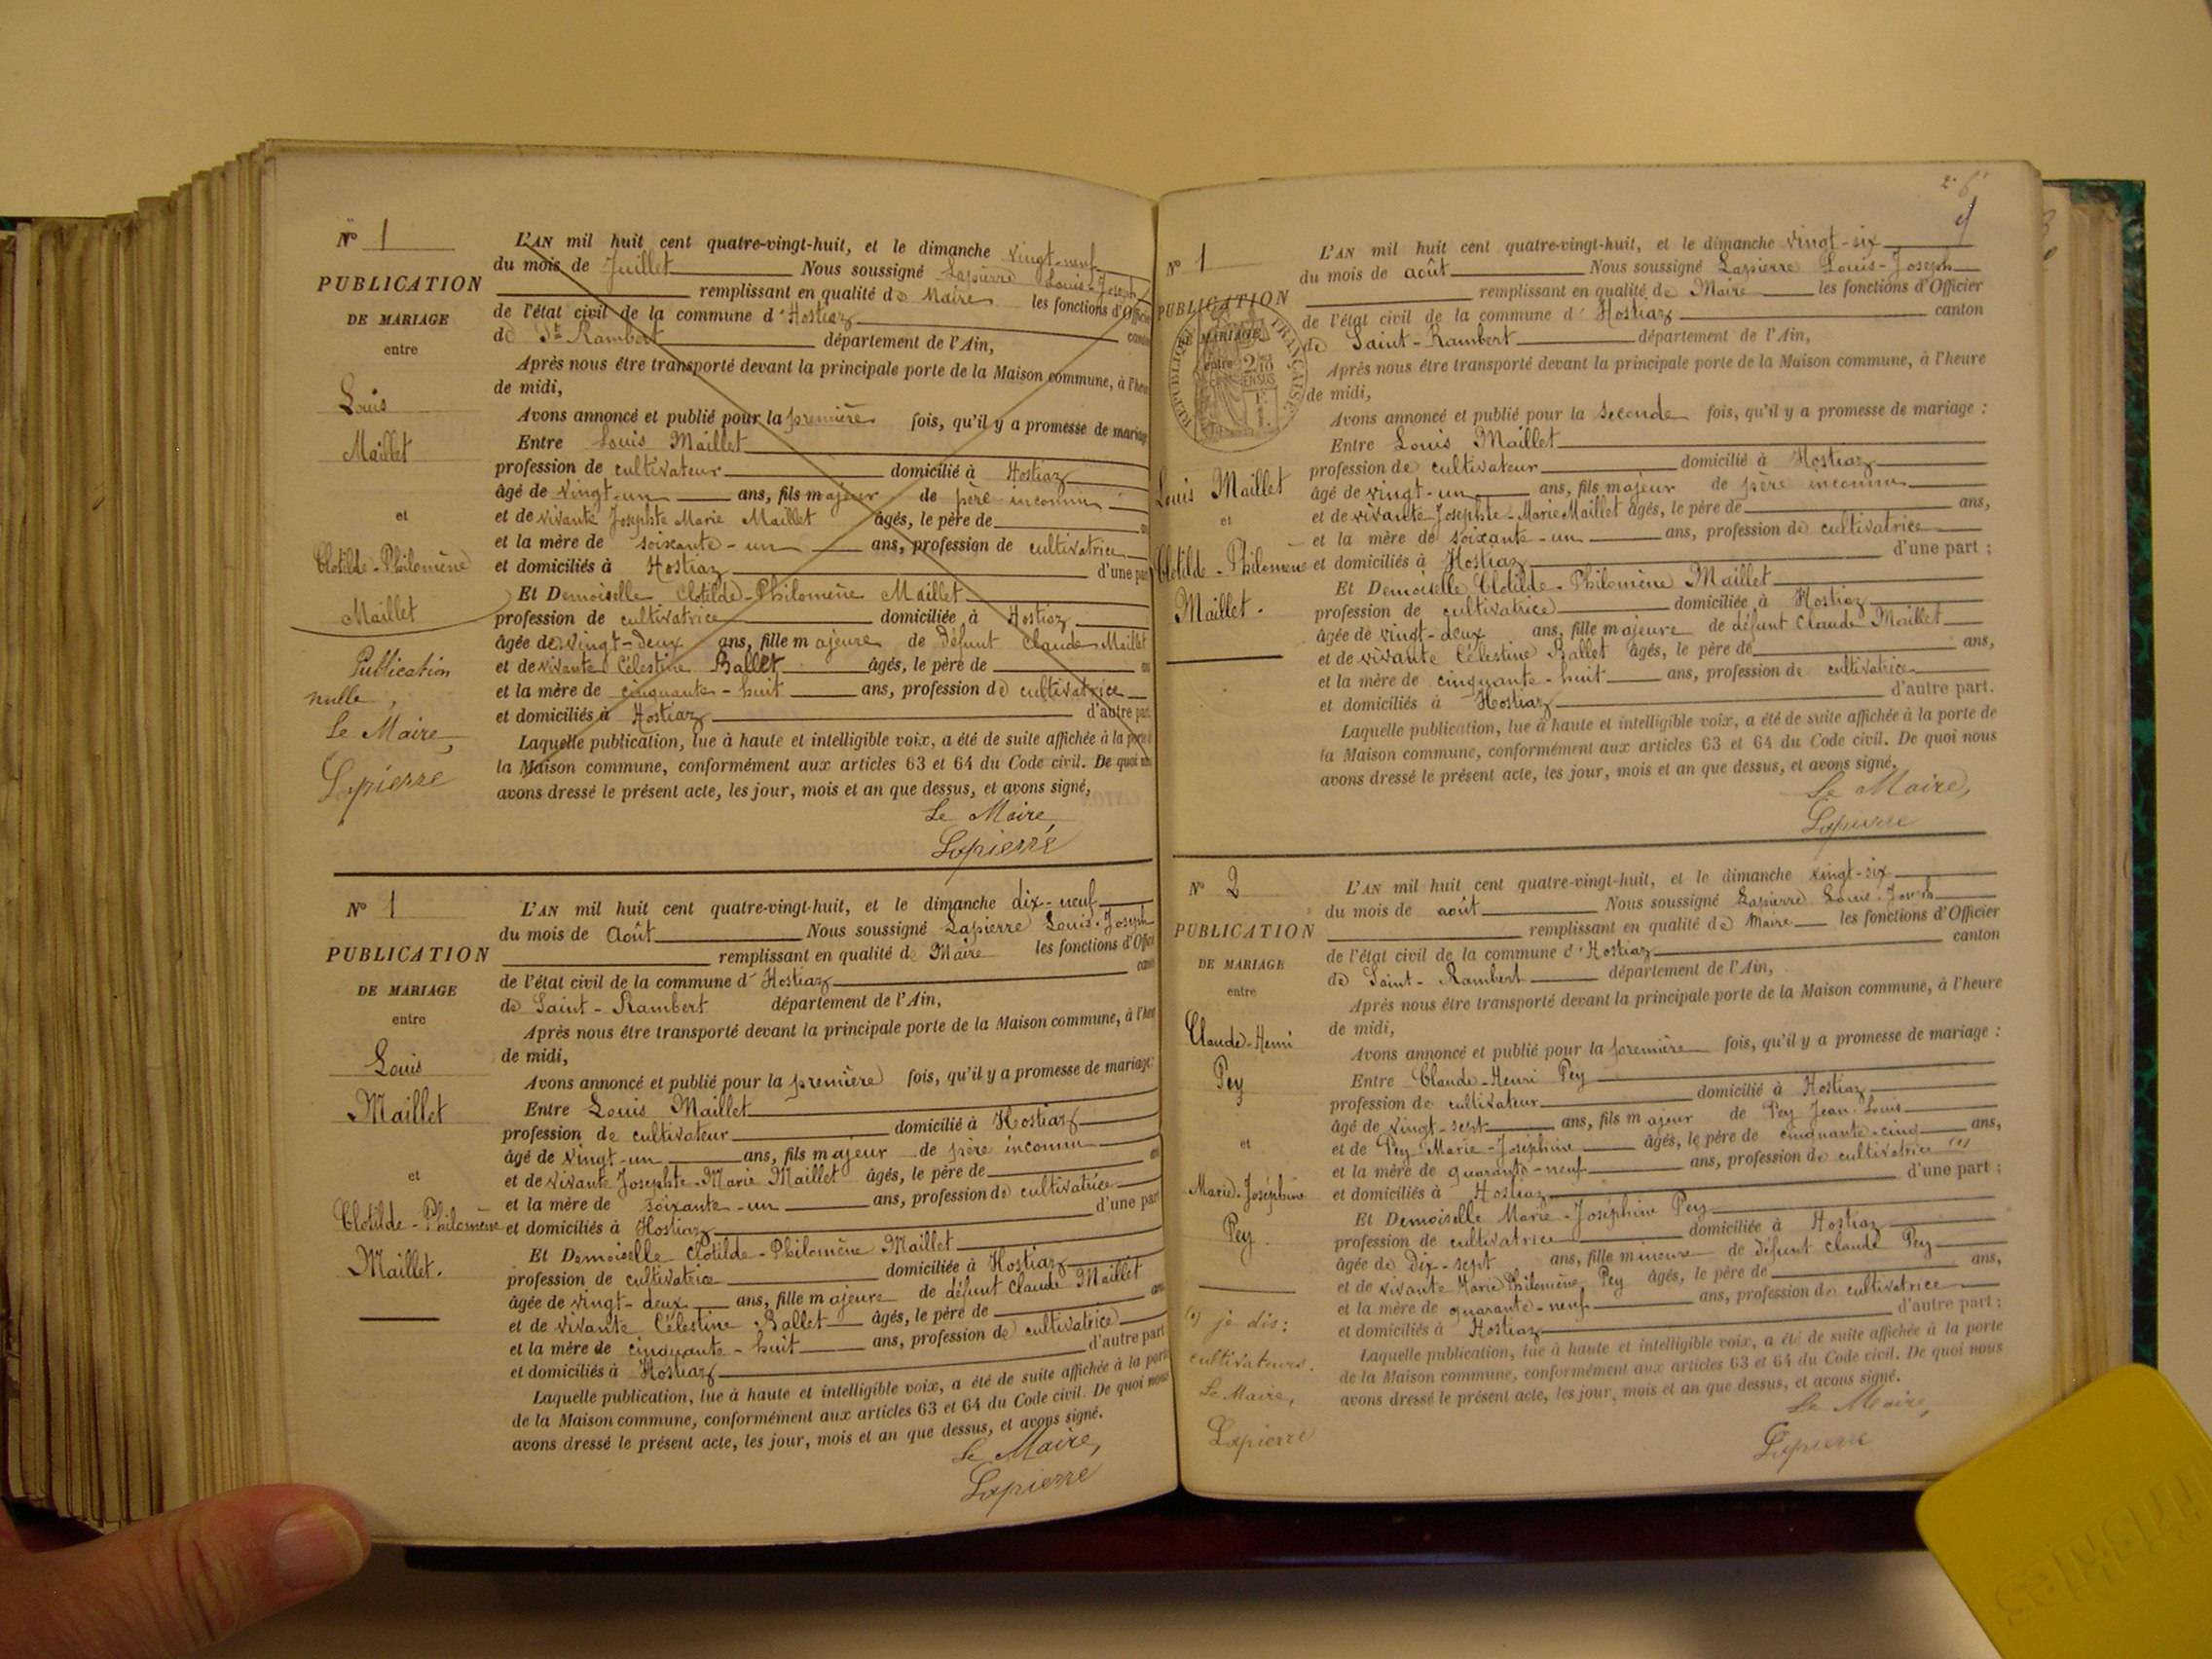 N° 1
PUBLICATION
DE MARIAGE
entre
Louis
Maillet
et
Clotilde-Philomène
Maillet
Publication
nulle,
Le Maire,
Lapierre
L'AN mil huit cent quatre-vingt-huit, et le dimanche vingt-neuf
du mois de Juillet Nous soussigné Lapierre Louis-Joseph
remplissant en qualité de Maire les fonctions d'Officier
de l'état civil de la commune d'Hostiaz canton
de St Rambert département de l'Ain,
Après nous être transporté devant la principale porte de la Maison commune, à l'heu
de midi,
Avons annoncé et publié pour la première fois, qu'il y a promesse de mariag
Entre Louis Maillet
profession de cultivateur domicilié à Hostiaz
âgé de vingt-un ans, fils majeur de père inconnu
et de vivante Josephte Marie Maillet âgés, le père de
et la mère de soixante-un ans, profession de cultivatrice
et domiciliés à Hostiaz d'une par
Et Demoiselle Clotilde-Philomène Maillet
profession de cultivatrice domiciliée à Hostiaz
âgée de vingt-deux ans, fille majeure de défunt Claude Maillet
et de vivante Célestine Ballet âgés, le père de
et la mère de cinquante-huit ans, profession de cultivatrice
et domiciliés à Hostiaz d'autre part
Laquelle publication, lue à haute et intelligible voix, a été de suite affichée à la porte
la Maison commune, conformément aux articles 63 et 64 du Code civil. De quoi nous
avons dressé le présent acte, les jour, mois et an que dessus, et avons signé,
Le Maire,
Lapierre
N° 1
PUBLICATION
DE MARIAGE
entre
Louis
Maillet
et
Clotilde-Philomène
Maillet.
L'AN mil huit cent quatre-vingt-huit, et le dimanche dix-neuf
du mois de Août Nous soussigné Lapierre Louis-Joseph
remplissant en qualité de Maire les fonctions d'Offici
de l'état civil de la commune d'Hostiaz cant
de Saint-Rambert département de l'Ain,
Après nous être transporté devant la principale porte de la Maison commune, à l'heu
de midi,
Avons annoncé et publié pour la première fois, qu'il y a promesse de mariage
Entre Louis Maillet
profession de cultivateur domicilié à Hostiaz
âgé de vingt-un ans, fils majeur de père inconnu
et de vivante Josephte-Marie Maillet âgés, le père de
et la mère de soixante-un ans, profession de cultivatrice
et domiciliés à Hostiaz d'une par
Et Demoiselle Clotilde-Philomène Maillet
profession de cultivatrice domiciliée à Hostiaz
âgée de vingt-deux ans, fille majeure de défunt Claude Maillet
et de vivante Célestine Ballet âgés, le père de ans
et la mère de cinquante-huit ans, profession de cultivatrice
et domiciliés à Hostiaz d'autre part
Laquelle publication, lue à haute et intelligible voix, a été de suite affichée à la porte
de la Maison commune, conformément aux articles 63 et 64 du Code civil. De quoi nous
avons dressé le présent acte, les jour, mois et an que dessus, et avons signé.
Le Maire,
Lapierre
N° 1
PUBLICATION
DE MARIAGE
entre
RÉPUBLIQUE FRANÇAISE
Louis Maillet
et
Clotilde-Philomène
Maillet.
L'AN mil huit cent quatre-vingt-huit, et le dimanche vingt-six
du mois de août Nous soussigné Lapierre Louis-Joseph
remplissant en qualité de Maire les fonctions d'Officier
de l'état civil de la commune d'Hostiaz canton
de Saint-Rambert département de l'Ain,
Après nous être transporté devant la principale porte de la Maison commune, à l'heure
de midi,
Avons annoncé et publié pour la seconde fois, qu'il y a promesse de mariage :
Entre Louis Maillet
profession de cultivateur domicilié à Hostiaz
âgé de vingt-un ans, fils majeur de père inconnu
et de vivante Josephte-Marie Maillet âgés, le père de ans,
et la mère de soixante-un ans, profession de cultivatrice
et domiciliés à Hostiaz d'une part ;
Et Demoiselle Clotilde-Philomène Maillet
profession de cultivatrice domiciliée à Hostiaz
âgée de vingt-deux ans, fille majeure de défunt Claude Maillet
et de vivante Célestine Ballet âgés, le père de ans,
et la mère de cinquante-huit ans, profession de cultivatrice
et domiciliés à Hostiaz d'autre part.
Laquelle publication, lue à haute et intelligible voix, a été de suite affichée à la porte de
la Maison commune, conformément aux articles 63 et 64 du Code civil. De quoi nous
avons dressé le présent acte, les jour, mois et an que dessus, et avons signé.
Le Maire,
Lapierre
N° 2
PUBLICATION
DE MARIAGE
entre
Claude-Henri
Pey
et
Marie-Joséphine
Pey.
(1) je dis :
cultivateurs.
Le Maire,
Lapierre
L'AN mil huit cent quatre-vingt-huit, et le dimanche vingt-six
du mois de août Nous soussigné Lapierre Louis-Joseph
remplissant en qualité de Maire les fonctions d'Officier
de l'état civil de la commune d'Hostiaz canton
de Saint-Rambert département de l'Ain,
Après nous être transporté devant la principale porte de la Maison commune, à l'heure
de midi,
Avons annoncé et publié pour la première fois, qu'il y a promesse de mariage :
Entre Claude-Henri Pey
profession de cultivateur domicilié à Hostiaz
âgé de vingt-sept ans, fils majeur de Pey Jean-Louis
et de Pey Marie-Joséphine âgés, le père de cinquante-cinq ans,
et la mère de quarante-neuf ans, profession de cultivatrice (1)
et domiciliés à Hostiaz d'une part ;
Et Demoiselle Marie-Joséphine Pey
profession de cultivatrice domiciliée à Hostiaz
âgée de dix-sept ans, fille mineure de défunt Claude Pey
et de vivante Marie Philomène Pey âgés, le père de ans,
et la mère de quarante-neuf ans, profession de cultivatrice
et domiciliés à Hostiaz d'autre part ;
Laquelle publication, lue à haute et intelligible voix, a été de suite affichée à la porte
de la Maison commune, conformément aux articles 63 et 64 du Code civil. De quoi nous
avons dressé le présent acte, les jour, mois et an que dessus, et avons signé.
Le Maire,
Lapierre